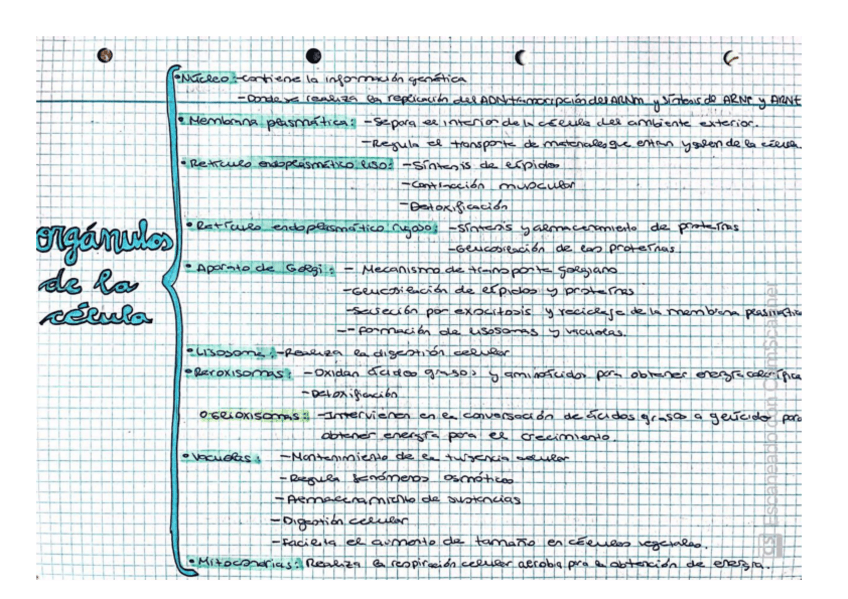 •Núcleo:-contiene la información genética
-Donde se realiza la replicación del ADN, transcripción del ARNm y síntesis de ARNr y ARNt
• Membrana plasmática: -Separa el interior de la célula del ambiente exterior.
-Regula el transporte de materiales que entran y salen de la célula
• Retículo endoplásmático liso: -Síntesis de lípidos
-Contracción muscular
-Detoxificación
• Retículo endoplasmático rugoso: -síntesis y almacenamiento de proteínas
-Glucosilación de las proteínas
orgánulos
de la
célula
• Aparato de Golgi: - Mecanismo de transporte golgiano
-Glucosilación de lípidos y proteínas
-Secreción por exocitosis y reciclaje de la membrana plasmática
-- Formación de lisosomas y vacuolas.
•Lisosoma:-Realiza la digestión celular
•Peroxisomas: -Oxidan ácidos grasos y aminoácidos para obtener energía calorífica
-Detoxificación
Glioxisomas: -Intervienen en la conversación de ácidos grasos a glúcidos para
obtener energía para el crecimiento.
•Vacuolas: -Mantenimiento de la turgencia celular
-Regula fenómenos osmóticos
-Almacenamiento de sustancias
-Digestión celular
-Facilita el aumento de tamaño en células vegetales.
•Mitocondrias: Realiza la respiración celular aerobia para la obtención de energía.
CS Escaneado con CamScanner